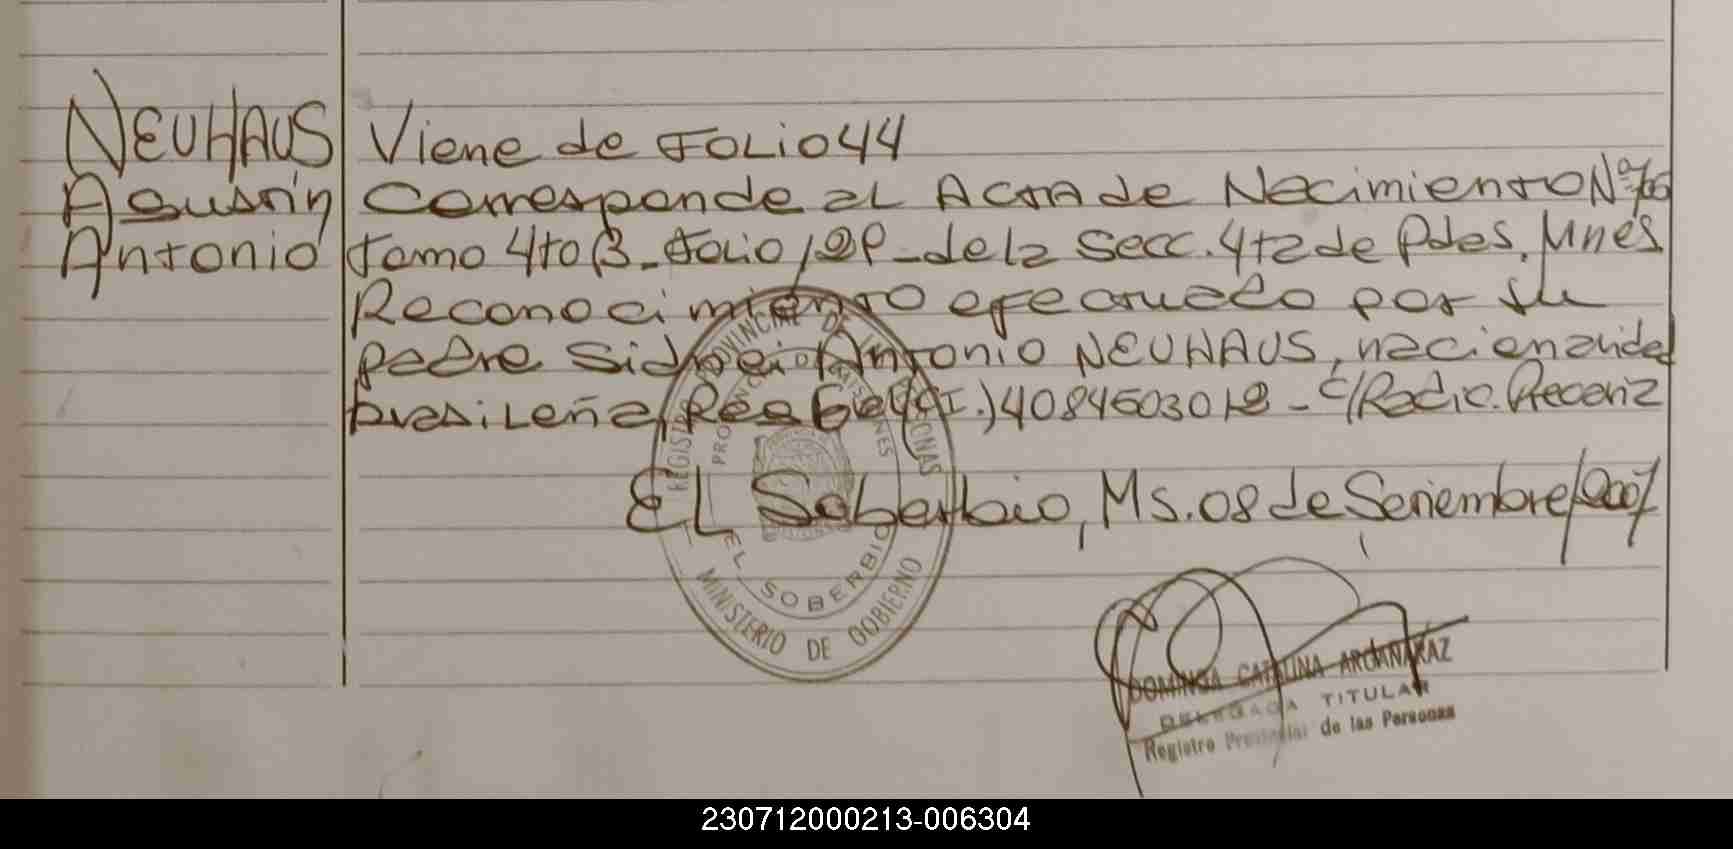 NEUHAUS
Agustín
Antonio
Viene de Folio 44
Corresponde al Acta de Nacimiento Nº
Tomo 4to B - Folio - de la Secc. 4ta de Pdas. Mnes
Reconocimiento efectuado por su
padre Sidnei Antonio NEUHAUS, nacionalidad
brasileña, (C.I.) 4084503018 - c/Radic. Precaria
EL Soberbio, Ms. 08 de Setiembre/2007
REGISTRO PROVINCIAL DE LAS PERSONAS
PROVINCIA DE MISIONES
EL SOBERBIO
MINISTERIO DE GOBIERNO
DOMINGA CATALINA ARGANARAZ
DELEGADA TITULAR
Registro Provincial de las Personas
230712000213-006304